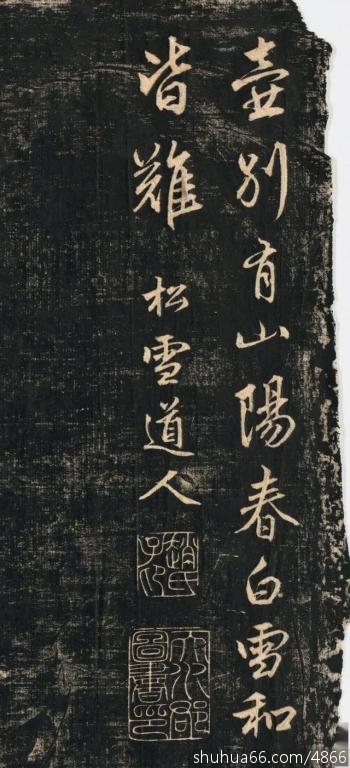 壺别有山陽春白雪和
皆難 松雪道人
趙氏子印
大小邨圖書印
shuhua66.com/4866